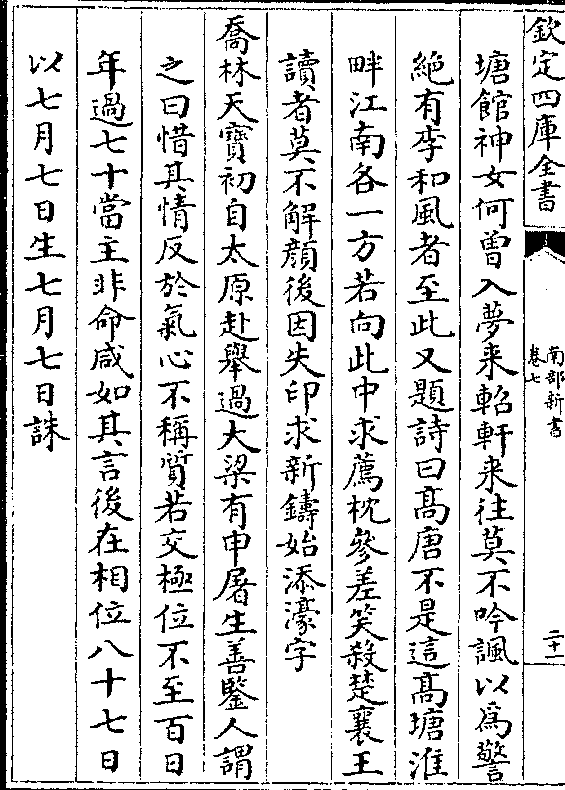 欽定四庫全書
南部新書
卷七
二十一
塘館神女何曽入夢来軺軒来往莫不吟諷以為警
絶有李和風者至此又題詩曰髙唐不是這髙塘淮
畔江南各一方若向此中求薦枕參差笑殺楚襄王
讀者莫不解顔後因失印求新鑄始添濠字
喬林天寳初自太原赴舉過大梁有申屠生善鑒人謂
之曰惜其情反於氣心不稱質若交極位不至百日
年過七十當主非命咸如其言後在相位八十七日
以七月七日生七月七日誅